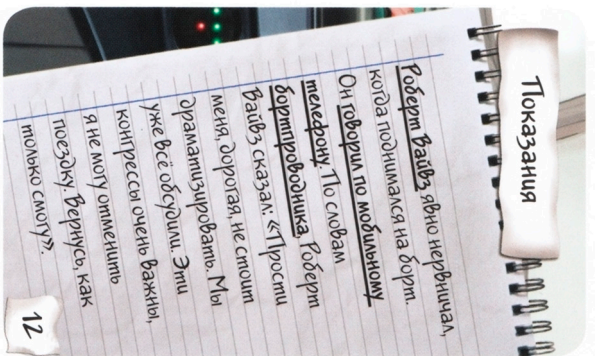 Показания
Роберт Вайвз явно нервничал,
когда поднимался на борт.
Он говорил по мобильному
телефону. По словам
бортпроводника, Роберт
Вайвз сказал: «Прости
меня, дорогая, не стоит
драматизировать. Мы
уже всё обсудили. Эти
конгрессы очень важны,
я не могу отменить
поездку. Вернусь, как
только смогу».
12